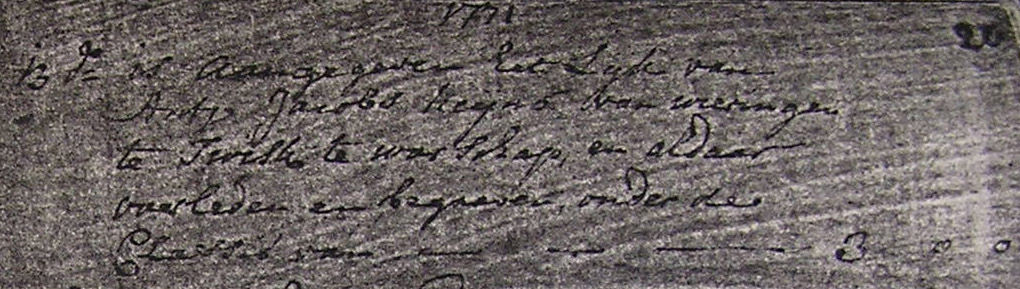 1771
13 do is aangegeven het Lijk van
Antj Jacobs Keijns van wieringen
te Twisk te waarschap, en aldaar
overleden en begraven, onder de
Classis van — — — 3 0 0